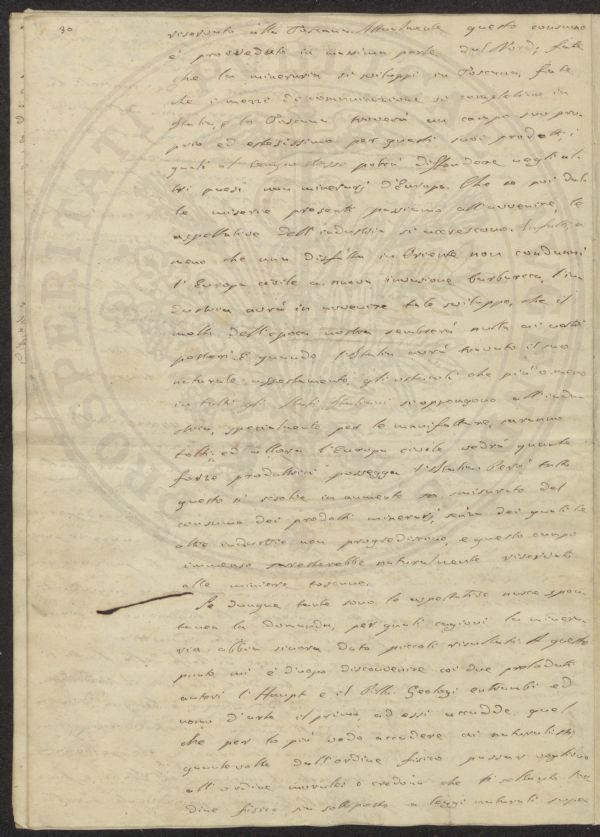 30
riservato alla Toscana. Attualmente questo consumo
è provveduto in massima parte dal Nord; fate
che la mineraria si sviluppi in Toscana, fate
che i mezzi di comunicazione si completino in
Italia, e la Toscana troverà un campo suo pro-
prio ed estesissimo per questi suoi prodotti, i
quali al tempo stesso potrà diffondere negli al-
tri paesi non minerarj d'Europa. Che se poi dal-
le miserie presenti passiamo all'avvenire, le
aspettative dell'industria si accrescono. Infatti, a
meno che una disfatta in Oriente non condanni
l'Europa civile a nuova invasione barbaresca, l'in-
dustria avrà in avvenire tale sviluppo, che il
molto dell'epoca nostra sembrerà nulla ai nostri
posteri. E quando l'Italia avrà trovato il suo
naturale assestamento, gli ostacoli che più o meno
in tutti gli Stati Italiani si oppongono all'indu-
stria, specialmente per le manifatture, saranno
tolti; ed allora l'Europa civile vedrà quante
forze produttrici possegga l'Italia. Però tutto
questo si risolve in aumento smisurato del
consumo dei prodotti minerarj, senza dei quali le
altre industrie non progrediscono, e questo campo
immenso resterebbe naturalmente riservato
alle miniere toscane.
Se dunque tante sono le aspettative nasce spon-
tanea la domanda, per quali cagioni la minera-
ria abbia sinora dato piccoli risultati. A questo
punto mi è d'uopo disconvenire coi due prelodati
autori l'Haupt e il Pilla. Geologi entrambi ed
uomo d'arte il primo, ad essi accadde quel
che per lo più vedo accadere ai naturalisti
quantevolte dall'ordine fisico passar vogliono
all'ordine morale: credono che soltanto l'or-
dine fisico sia sottoposto a leggi naturali supe-